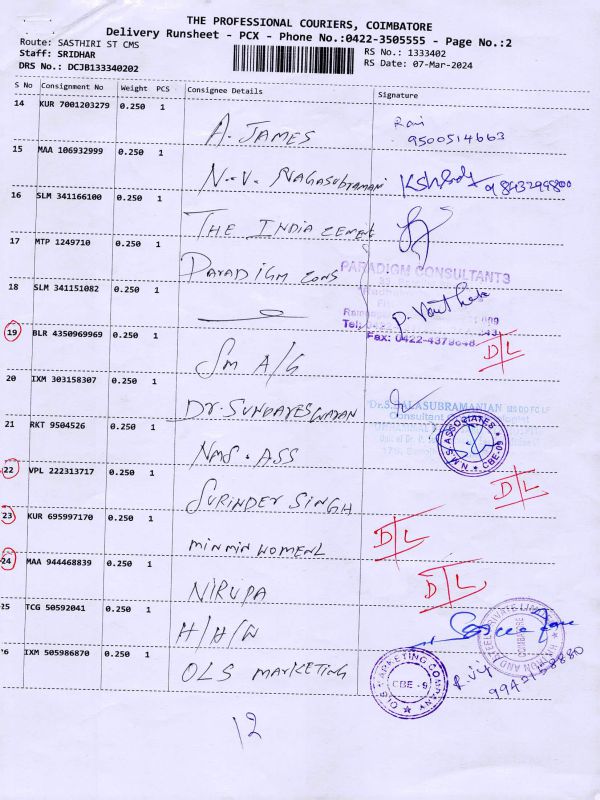 THE PROFESSIONAL COURIERS, COIMBATORE
Delivery Runsheet - PCX - Phone No.:0422-3505555 - Page No.:2
Route: SASTHIRI ST CMS
RS No.: 1333402
Staff: SRIDHAR
RS Date: 07-Mar-2024
DRS No.: DCJB133340202
S No Consignment No Weight PCS Consignee Details Signature
14 KUR 7001203279 0.250 1
A. JAMES
9500514663
15 MAA 106932999 0.250 1
N.V. NAGASUBRAMANI
9843299800
16 SLM 341166100 0.250 1
THE INDIA CEMENT
17 MTP 1249710 0.250 1
PARADIGM CONS
PARADIGM CONSULTANTS
18 SLM 341151082 0.250 1
Fax: 0422-4379848
19 BLR 4350969969 0.250 1
SM A/G
D/L
20 IXM 303158307 0.250 1
DR. SUNDARESWARAN
Dr.S. BALASUBRAMANIAN
21 RKT 9504526 0.250 1
NMS. ASS
N M S ASSOCIATES CBE-09
22 VPL 222313717 0.250 1
SURINDER SINGH
D/L
23 KUR 695997170 0.250 1
MINMIN WOMENL
D/L
24 MAA 944468839 0.250 1
NIRUPA
D/L
25 TCG 50592041 0.250 1
H/H/W
COIMBATORE
26 IXM 505986870 0.250 1
OLS MARKETING
OLS MARKETING COMPANY CBE - 9
12